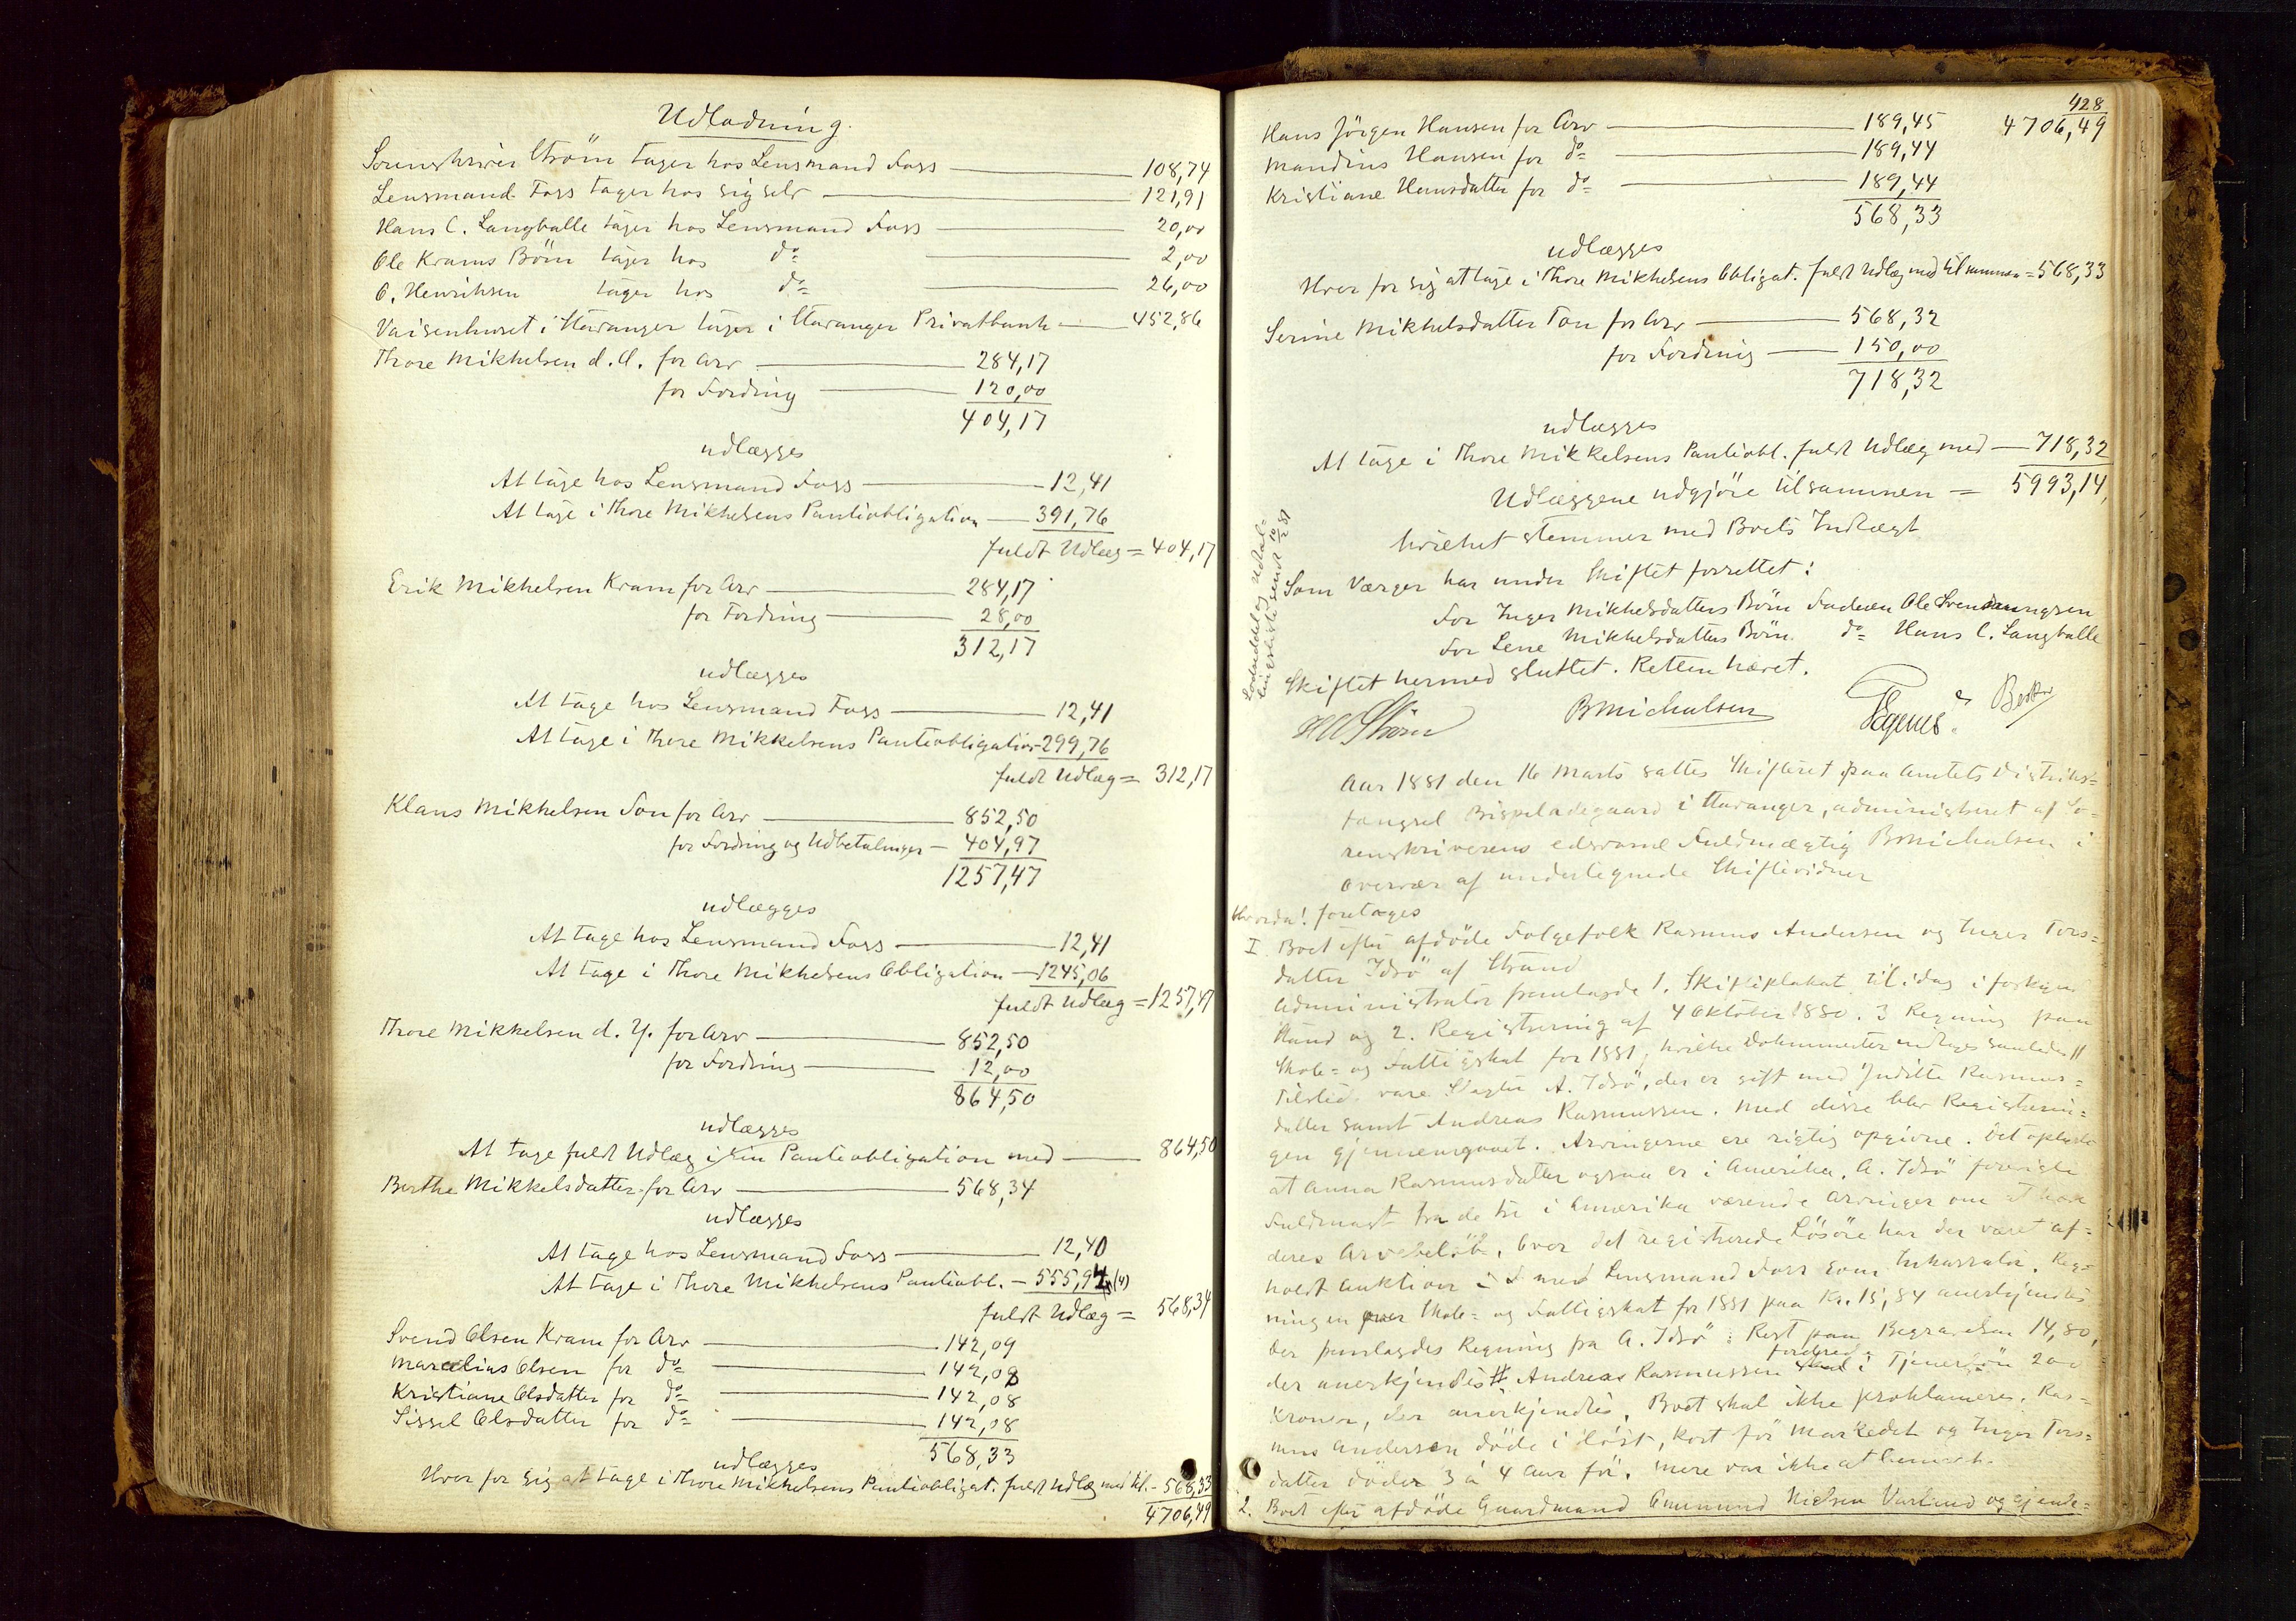 Udlodning.
Sorenskriver Strøm tager hos Lensmand Foss 108,74
Lensmand Foss tager hos sig selv 121,91
Hans C. Langballe tager hos Lensmand Foss 20,00
Ole Krams Börn tager hos do 2,00
O. Henriksen tager hos do 26,00
Vaisenhuset i Stavanger tager i Stavanger Privatbank 452,86
Thore Mikkelsen d. Æ. for Arv 284,17
for Fordring 120,00
404,17
udlægges
At tage hos Lensmand Foss 12,41
At tage i Thore Mikkelsens Panteobligation 391,76
fuldt Udlæg = 404,17
Erik Mikkelsen Kram for Arv 284,17
for Fordring 28,00
312,17
udlægges
At tage hos Lensmand Foss 12,41
At tage i Thore Mikkelsens Panteobligation 299,76
fuldt Udlæg = 312,17
Klaus Mikkelsen Tou for Arv 852,50
for Fordring og Udbetalinger 404,97
1257,47
udlægges
At tage hos Lensmand Foss 12,41
At tage i Thore Mikkelsens Obligation 1245,06
fuldt Udlæg = 1257,47
Thore Mikkelsen d. Y. for Arv 852,50
for Fordring 12,00
864,50
udlægges
At tage fuldt Udlæg i sin Panteobligation med 864,50
Berthe Mikkelsdatter for Arv 568,34
udlægges
At tage hos Lensmand Foss 12,40
At tage i Thore Mikkelsens Panteobl. 555,94 (4)
fuldt Udlæg = 568,34
Svend Olsen Kram for Arv 142,09
Marcelius Olsen for do 142,08
Kristiane Olsdatter for do 142,08
Sissel Olsdatter for do 142,08
568,33
udlægges
Hver for sig at tage i Thore Mikkelsens Panteobligat. fuldt Udlæg med til. 568,33
4706,49
428
4706,49
Hans Jörgen Hansen for Arv 189,45
Mandius Hansen for do 189,44
Kristiane Hansdatter for do 189,44
568,33
udlægges
Hver for sig at tage i Thore Mikkelsens Obligat. fuldt Udlæg med tilsammen = 568,33
Serine Mikkelsdatter Tou for Arv 568,32
for Fordring 150,00
718,32
udlægges
At tage i Thore Mikkelsens Panteobl. fuldt Udlæg med 718,32
Udlæggene udgjöre tilsammen = 5993,14,
hvilket stemmer med Boets Indtægt
Som Værger har under Skiftet forrettet:
For Inger Mikkelsdatters Börn Faderen Ole Svendsen
For Lene Mikkelsdatters Börn do Hans C. Langballe
Skiftet hermed sluttet. Retten hævet.
Loddeddel og Udbetalingsliste sendt 10/2 81
HWStrøm BMichalsen
Aar 1881 den 16 Marts sattes Skifteret paa Amtets Distrikts-
fængsel Bispeladegaard i Stavanger, administreret af So-
renskriverens edsvorne Fuldmægtig BMichalsen i
Overvær af undertegnede Skiftevidner
Hvorda! foretages
I. Boet efter afdöde Folgefolk Rasmus Andersen og Inger Tors-
datter Idsö af Strand
Administrator fremlagde 1. Skifteplakat til idag i forkynd
Stand og 2. Registrering af 4 Oktober 1880. 3 Regning paa
Skole- og Fattigskat for 1881, hvilke Dokumenter indtages saaledes #
Tilstede vare A. Idsö, der er gift med Juditte Rasmus-
datter samt Andreas Rasmussen. Med disse blev Registrerin-
gen gjennemgaaet. Arvingerne ere rigtig opgivne. Det oplystes
at Anna Rasmusdatter ogsaa er i Amerika. A. Idsö foreviste
Fuldmagt fra de tre i Amerika værende Arvinger om at hæve
deres Arvebelöb. Over det registrerede Lösöre har der været af-
holdt Auktion med Lensmand Foss som Inkassator. Reg-
ningen over Skole- og Fattigskat for 1881 paa Kr. 15,84 anerkjendtes
Der fremlagdes Regning fra A. Idsö: Rest paa Begravelsen 14,80,
der anerkjendtes # Andreas Rasmussen fordrede i Tjenerlön 200
Kroner, der anerkjendtes. Boet skal ikke proklameres. Ras-
mus Andersen döde i Höst, kort för Markedet og Inger Tors-
datter döde 3 à 4 Aar för. Mere var ikke at bemærke.
2. Boet efter afdöde Gaardmand Omund Nielsen Varland og gjenle-